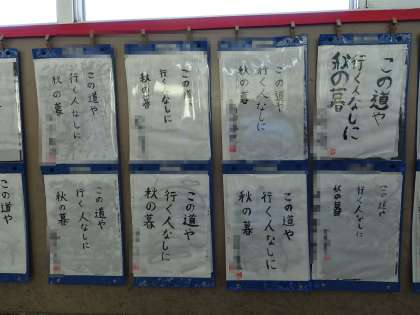 この道や
行く人なしに
秋の暮
この道や
行く人なしに
秋の暮
この道や
行く人なしに
秋の暮
この道や
行く人なしに
秋の暮
この道や
行く人なしに
秋の暮
この道や
行く人なしに
秋の暮
この道や
行く人なしに
秋の暮
この道や
行く人なしに
秋の暮
この道や